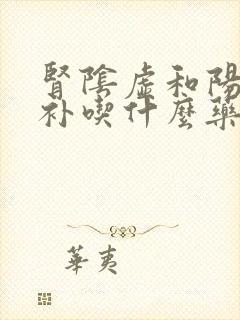 腎陰虛和陽
补喫什麼藥
華夷